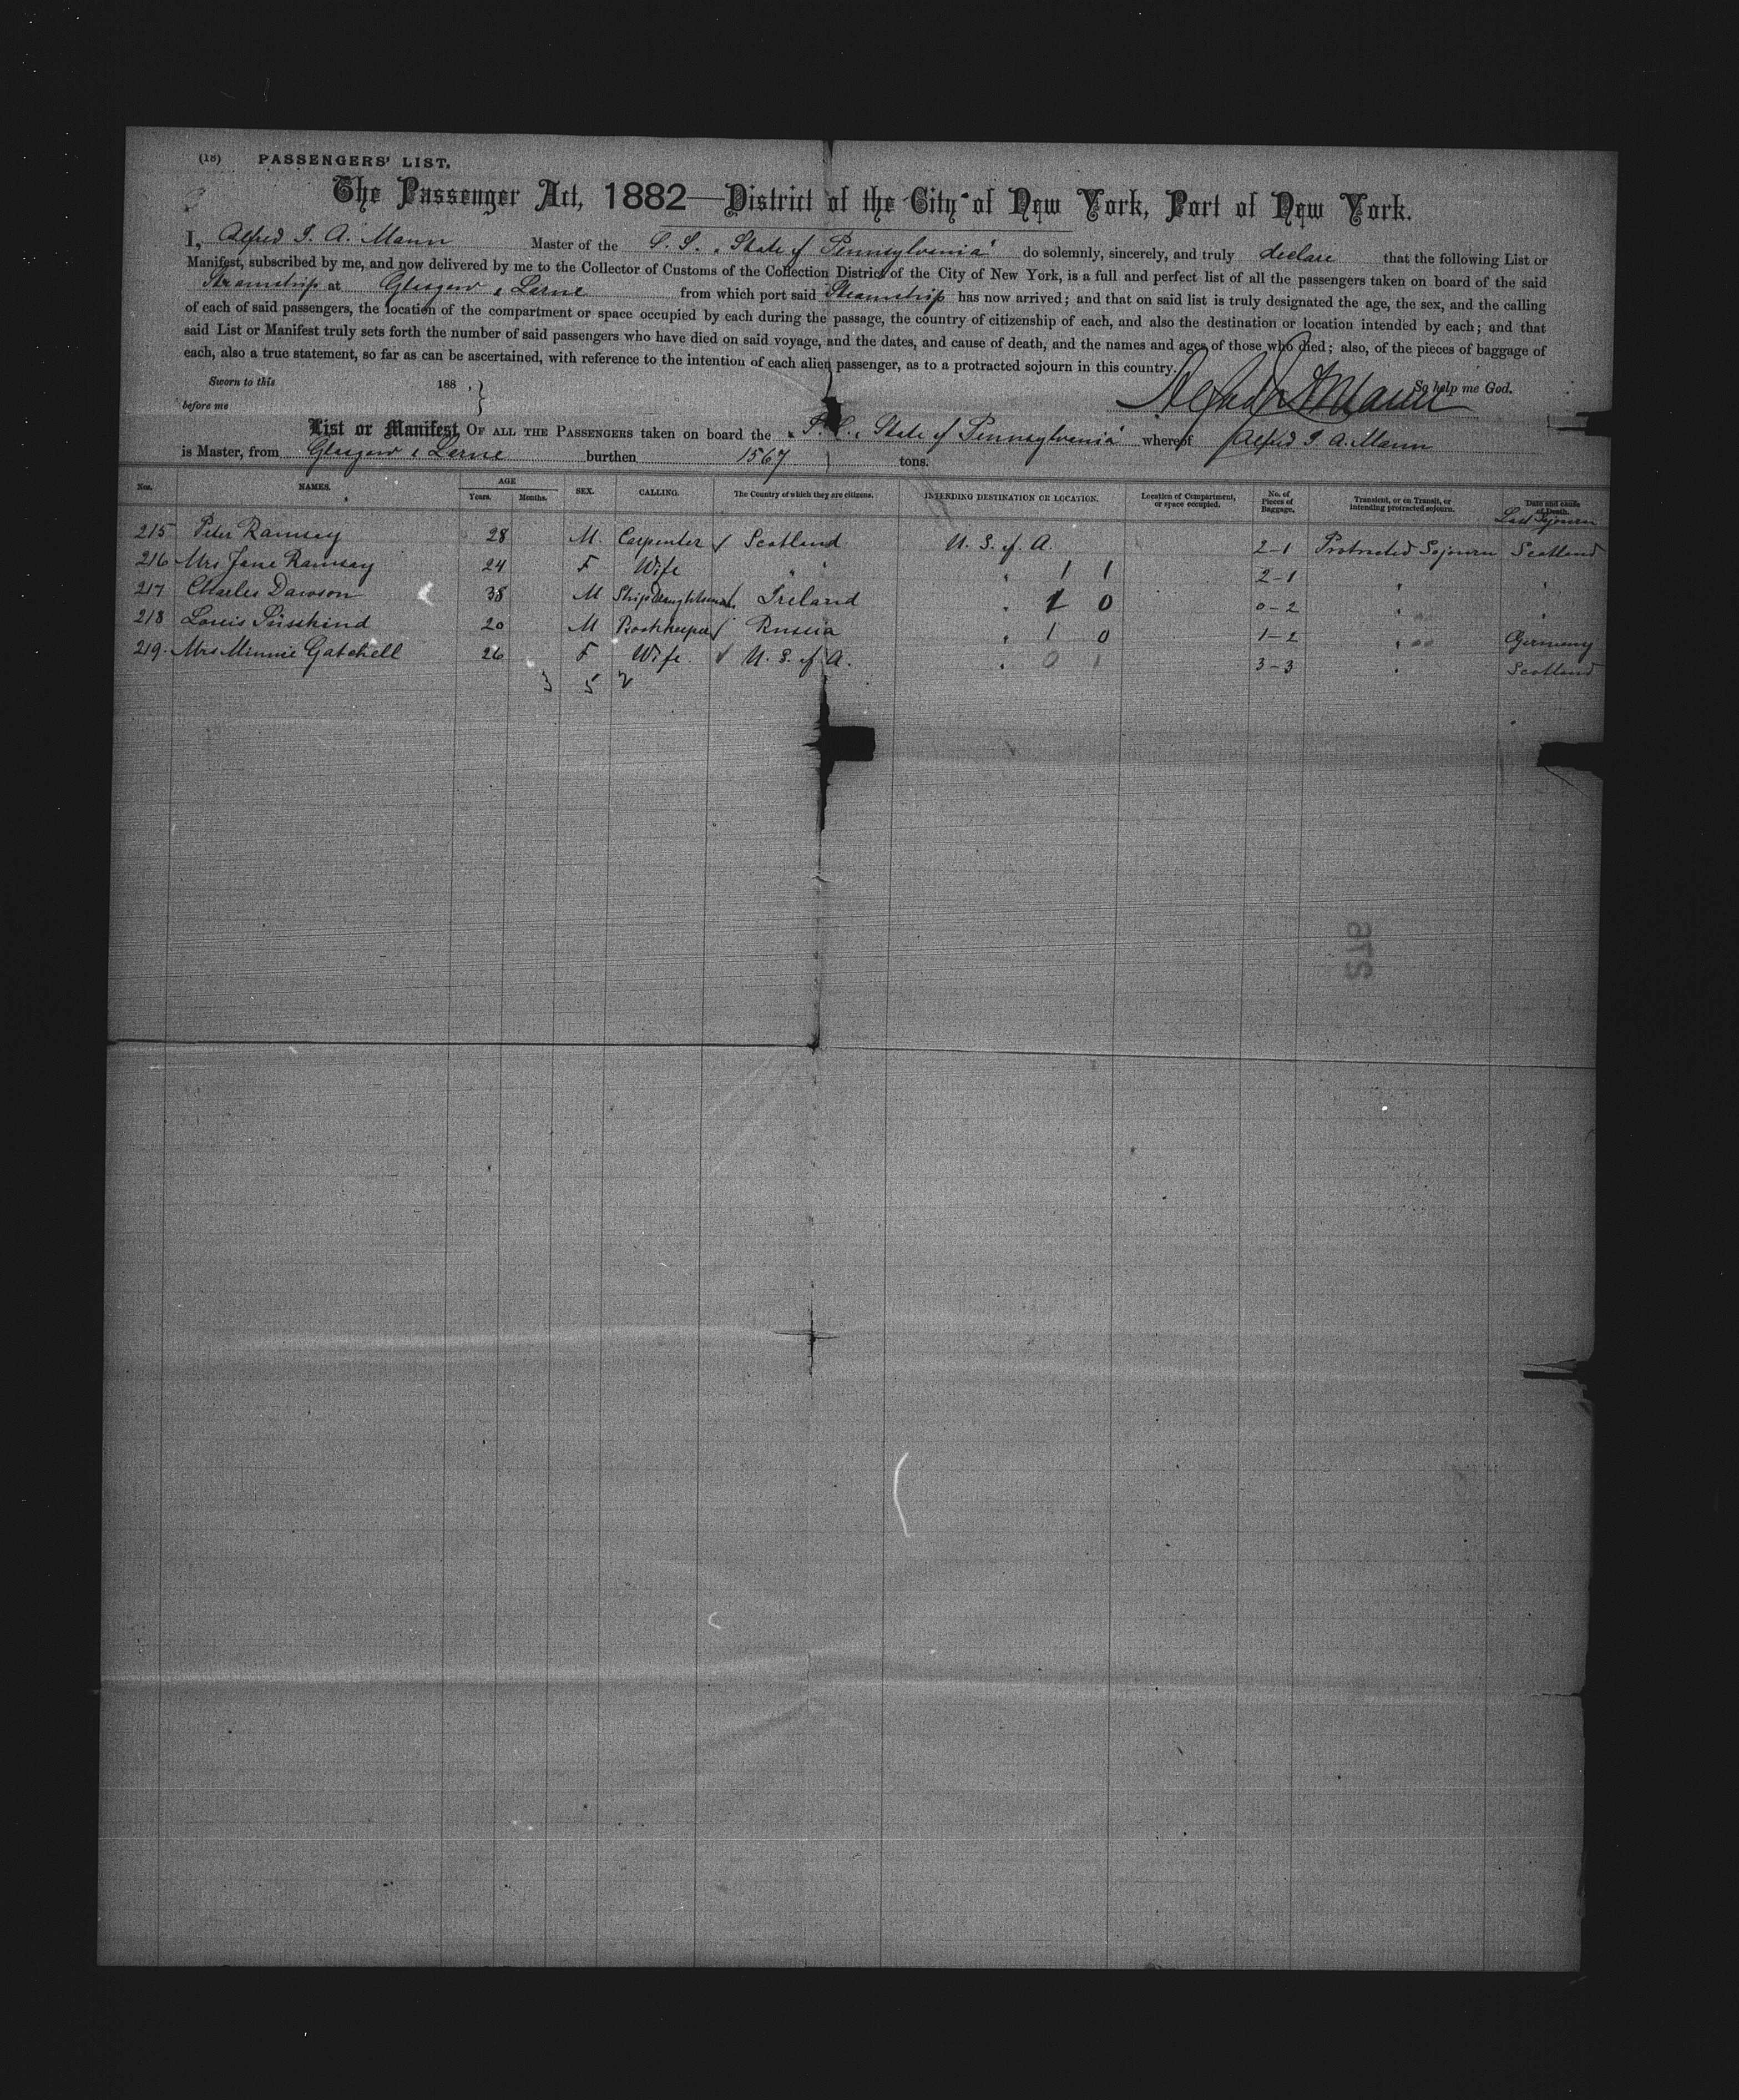 (18) PASSENGERS' LIST.
The Passenger Act, 1882—District of the City of New York, Port of New York.
I, Alfred I. A. Mann Master of the S. S. "State of Pennsylvania" do solemnly, sincerely, and truly declare that the following List or
Manifest, subscribed by me, and now delivered by me to the Collector of Customs of the Collection District of the City of New York, is a full and perfect list of all the passengers taken on board of the said
Steamship at Glasgow & Larne from which port said Steamship has now arrived; and that on said list is truly designated the age, the sex, and the calling
of each of said passengers, the location of the compartment or space occupied by each during the passage, the country of citizenship of each, and also the destination or location intended by each; and that
said List or Manifest truly sets forth the number of said passengers who have died on said voyage, and the dates, and cause of death, and the names and ages of those who died; also, of the pieces of baggage of
each, also a true statement, so far as can be ascertained, with reference to the intention of each alien passenger, as to a protracted sojourn in this country.
Sworn to this 188 , So help me God.
before me
List or Manifest OF ALL THE PASSENGERS taken on board the "S.S. State of Pennsylvania" whereof Alfred I. A. Mann
is Master, from Glasgow & Larne burthen 1567 tons.
Nos. NAMES. AGE Years. Months. SEX. CALLING. The Country of which they are citizens. INTENDING DESTINATION OR LOCATION. Location of Compartment, or space occupied. No. of Pieces of Baggage. Transient, or on Transit, or intending protracted sojourn. Date and cause of Death. Last Sojourn
215 Peter Ramsay 28 M. Carpenter Scotland U. S. of A. 2-1 Protracted Sojourn Scotland
216 Mrs Jane Ramsay 24 F Wife " " " 1 1 2-1 " "
217 Charles Dawson 38 M Ship Draughtsman Ireland " 1 0 0-2 " "
218 Louis Süsskind 20 M Bookkeeper Russia " 1 0 1-2 " Germany
219. Mrs Minnie Gatchell 26 F Wife. U. S. of A. " 0 1 3-3 " Scotland
3 5 2